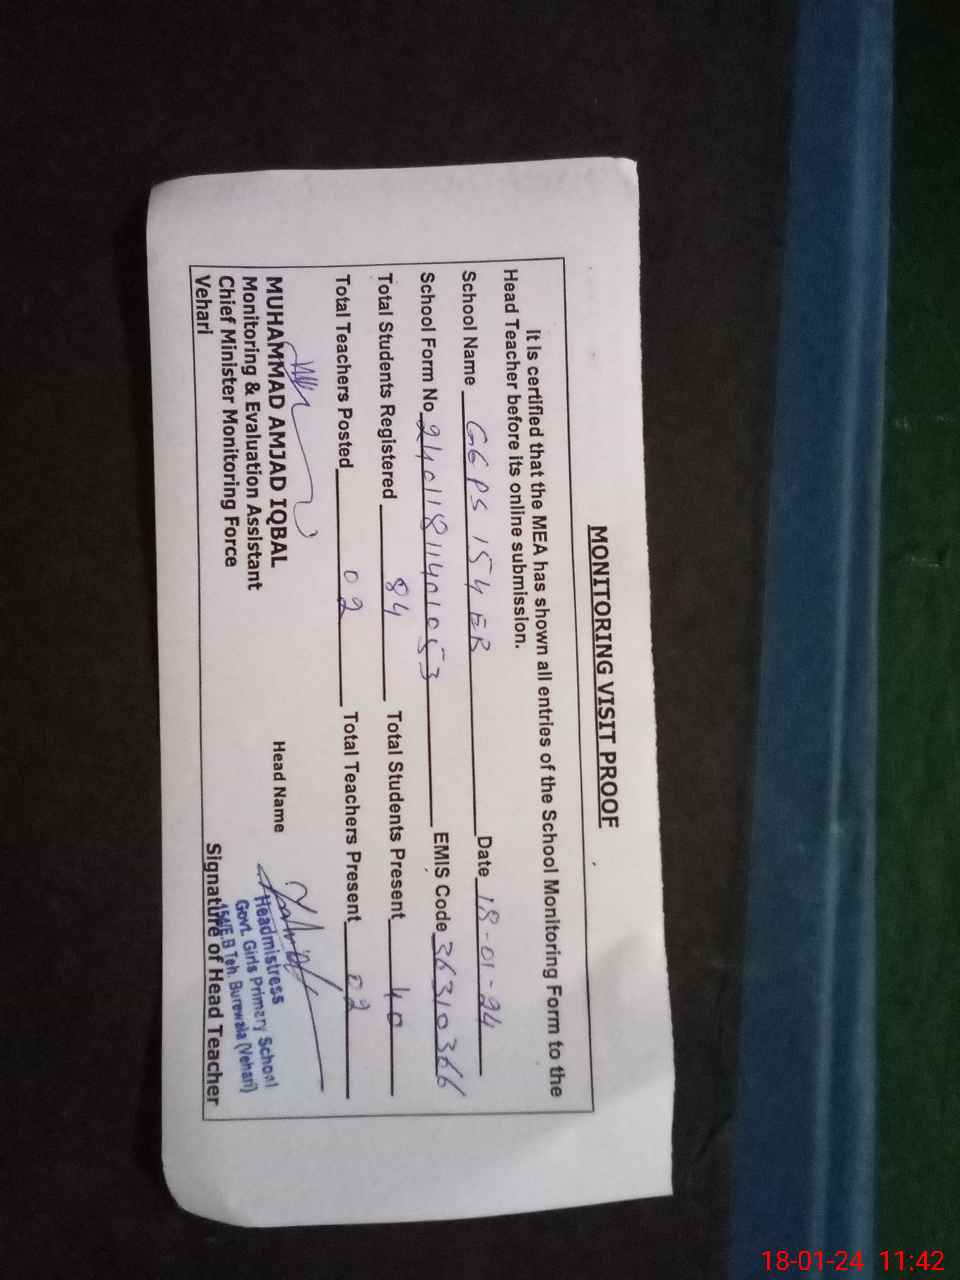 MONITORING VISIT PROOF
It is certified that the MEA has shown all entries of the School Monitoring Form to the
Head Teacher before its online submission.
School Name GGPS 154 EB Date 18-01-24
School Form No 24011811401053 EMIS Code 36310366
Total Students Registered 84 Total Students Present 40
Total Teachers Posted 02 Total Teachers Present 02
MUHAMMAD AMJAD IQBAL
Monitoring & Evaluation Assistant
Chief Minister Monitoring Force
Vehari
Head Name
Headmistress
Govt. Girls Primary School
154/E.B Teh. Burewala (Vehari)
Signature of Head Teacher
18-01-24 11:42